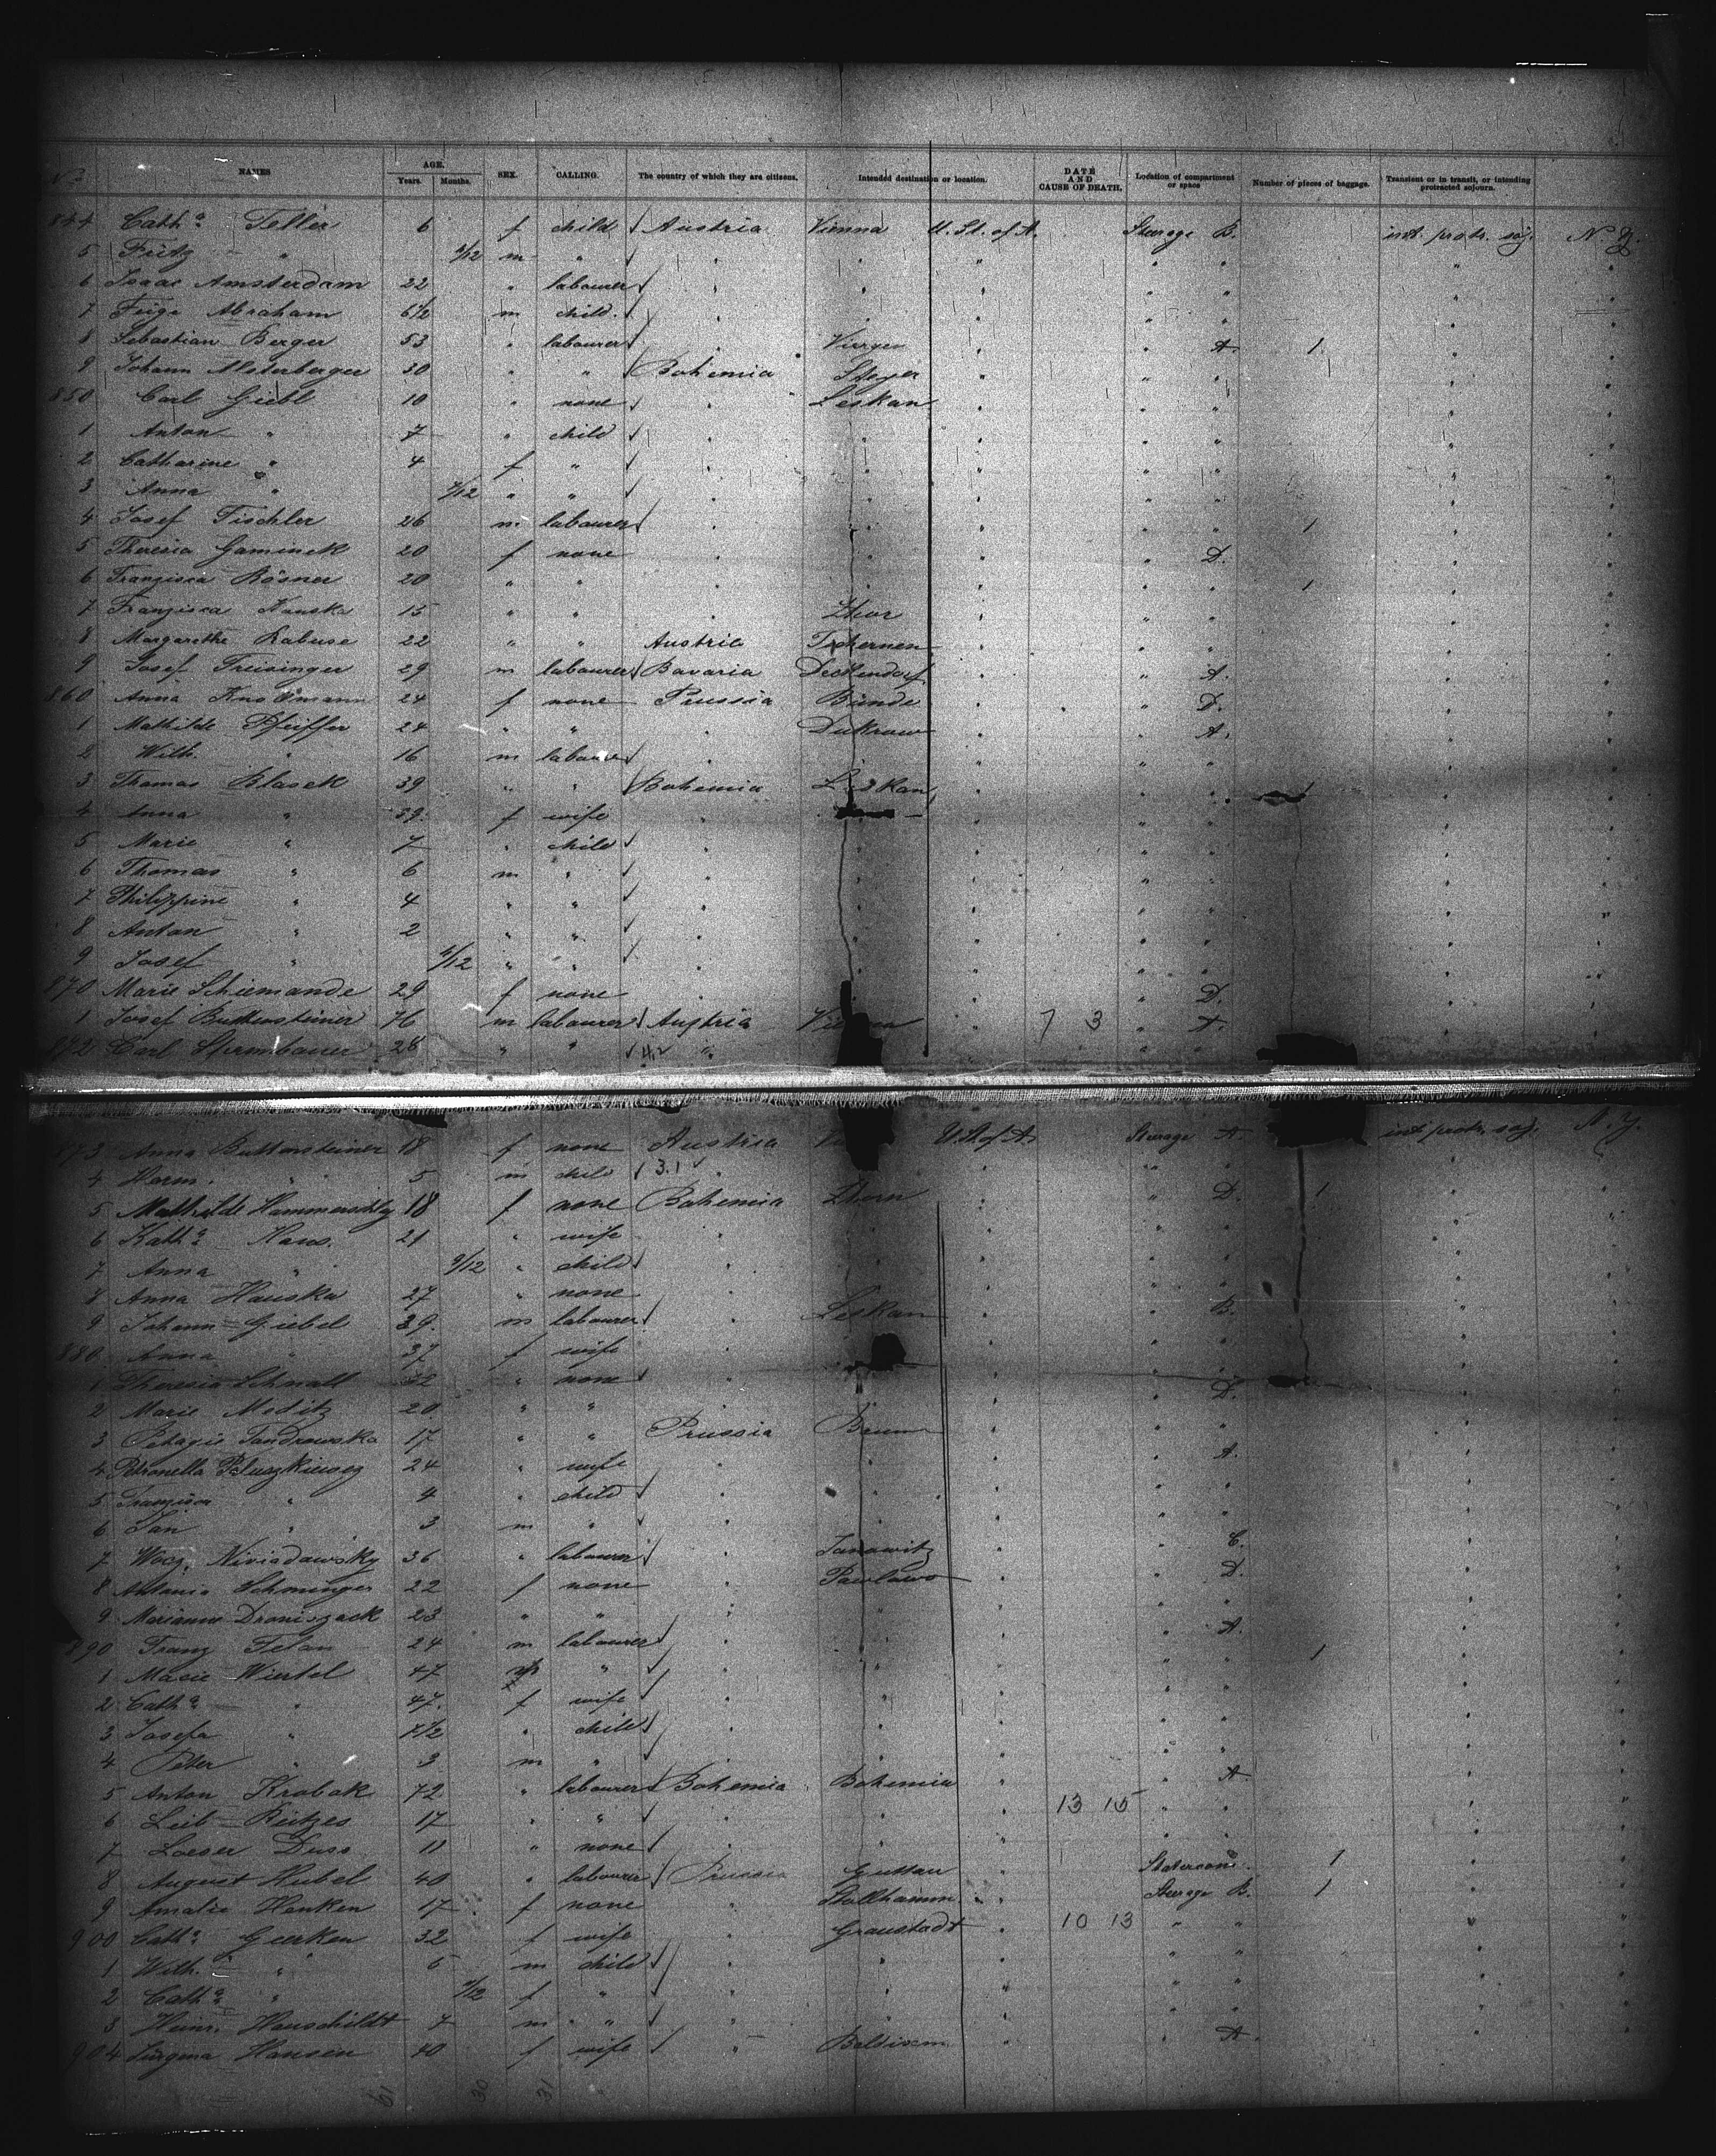 No. NAMES AGE. Years. Months. SEX. CALLING. The country of which they are citizens. Intended destination or location. DATE AND CAUSE OF DEATH. Location of compartment or space Number of pieces of baggage. Transient or in transit, or intending protracted sojourn.
844 Cath.a Teller 6 f child Austria Vienna U. St. of A. Steerage B. int. protr. soj. N. Y.
5 Fritz " /12 m "
6 Isaac Amsterdam 22 " labourer
7 Feige Abraham 6 1/2 m child
8 Sebastian Berger 53 " labourer A. 1
9 Johann Alsterberger 30 " " Bohemia Steyer
850 Carl Giebl 10 " none Leskan
1 Anton " 7 " child
2 Catharine " 4 f "
3 Anna " /12 " "
4 Josef Fischler 26 m labourer 1
5 Theresia Gaminek 20 f none D.
6 Franzisca Rösner 20 " " 1
7 Franzisca Hauska 15 " "
8 Margarethe Rabuse 22 " " Austria Tschernen
9 Josef Freisinger 29 m labourer Bavaria Deckendorf A.
860 Anna Knollmann 24 f none Prussia Bünde D.
1 Mathilde Pfeiffer 24 " " Dukrow A.
2 Wilh. " 16 m labourer
3 Thomas Blasek 39 " " Bohemia Leskan
4 Anna " 39 f wife
5 Marie " 7 " child
6 Thomas " 6 m "
7 Philippine " 4 " "
8 Anton " 2 " "
9 Josef " /12 " "
870 Marie Schiemande 29 f none D.
1 Josef Buttensteiner 76 m labourer Austria 7 3 A.
872 Carl Stermbauer 28 " " "
873 Anna Buttensteiner 18 f none Austria U. St. of A. Steerage A. int. protr. soj. N. Y.
4 Herm. " 5 m child 3.1
5 Mathilde Hammerschky 18 f none Bohemia D. 1
6 Kath.a Haus. 21 " wife
7 Anna " 9/12 " child
8 Anna Hauska 27 " none
9 Johann Giebel 39 m labourer Leskan B.
880 Anna " 37 f wife
1 Theresia Schnall 32 " none D.
2 Marie Meditz 20 " "
3 Pelagie Tandrowska 17 " " Prussia
4 Petronella 24 " wife A.
5 Franzisca " 4 " child
6 Jan " 3 m "
7 36 " labourer Janowitz C.
8 Antonia Schminger 22 f none Pawlowo D.
9 Marianne Droniszack 23 " "
890 Franz Felan 24 m labourer A.
1 Macie Wiertel 47 " 1
2 Cath.a " 47 f wife
3 Josefa " 7 1/2 " child
4 Peter " 3 m "
5 Anton Krabak 72 " labourer Bohemia Bohemia A.
6 Leib Ritzes 17 " " 13 15
7 Loeser Duss 11 " none
8 August Hubel 40 " labourer Prussia Guttau Stateroom 1
9 Amalie Henken 17 f none Stollhamm Steerage B. 1
900 Cath.a Gerken 32 f wife Graustadt 10 13 " "
1 Wilh. " 5 m child
2 Cath.a " /12 f "
3 Heinr. Hauschildt 4 m "
904 Jürgena Hansen 40 f wife " A.
61 30 31